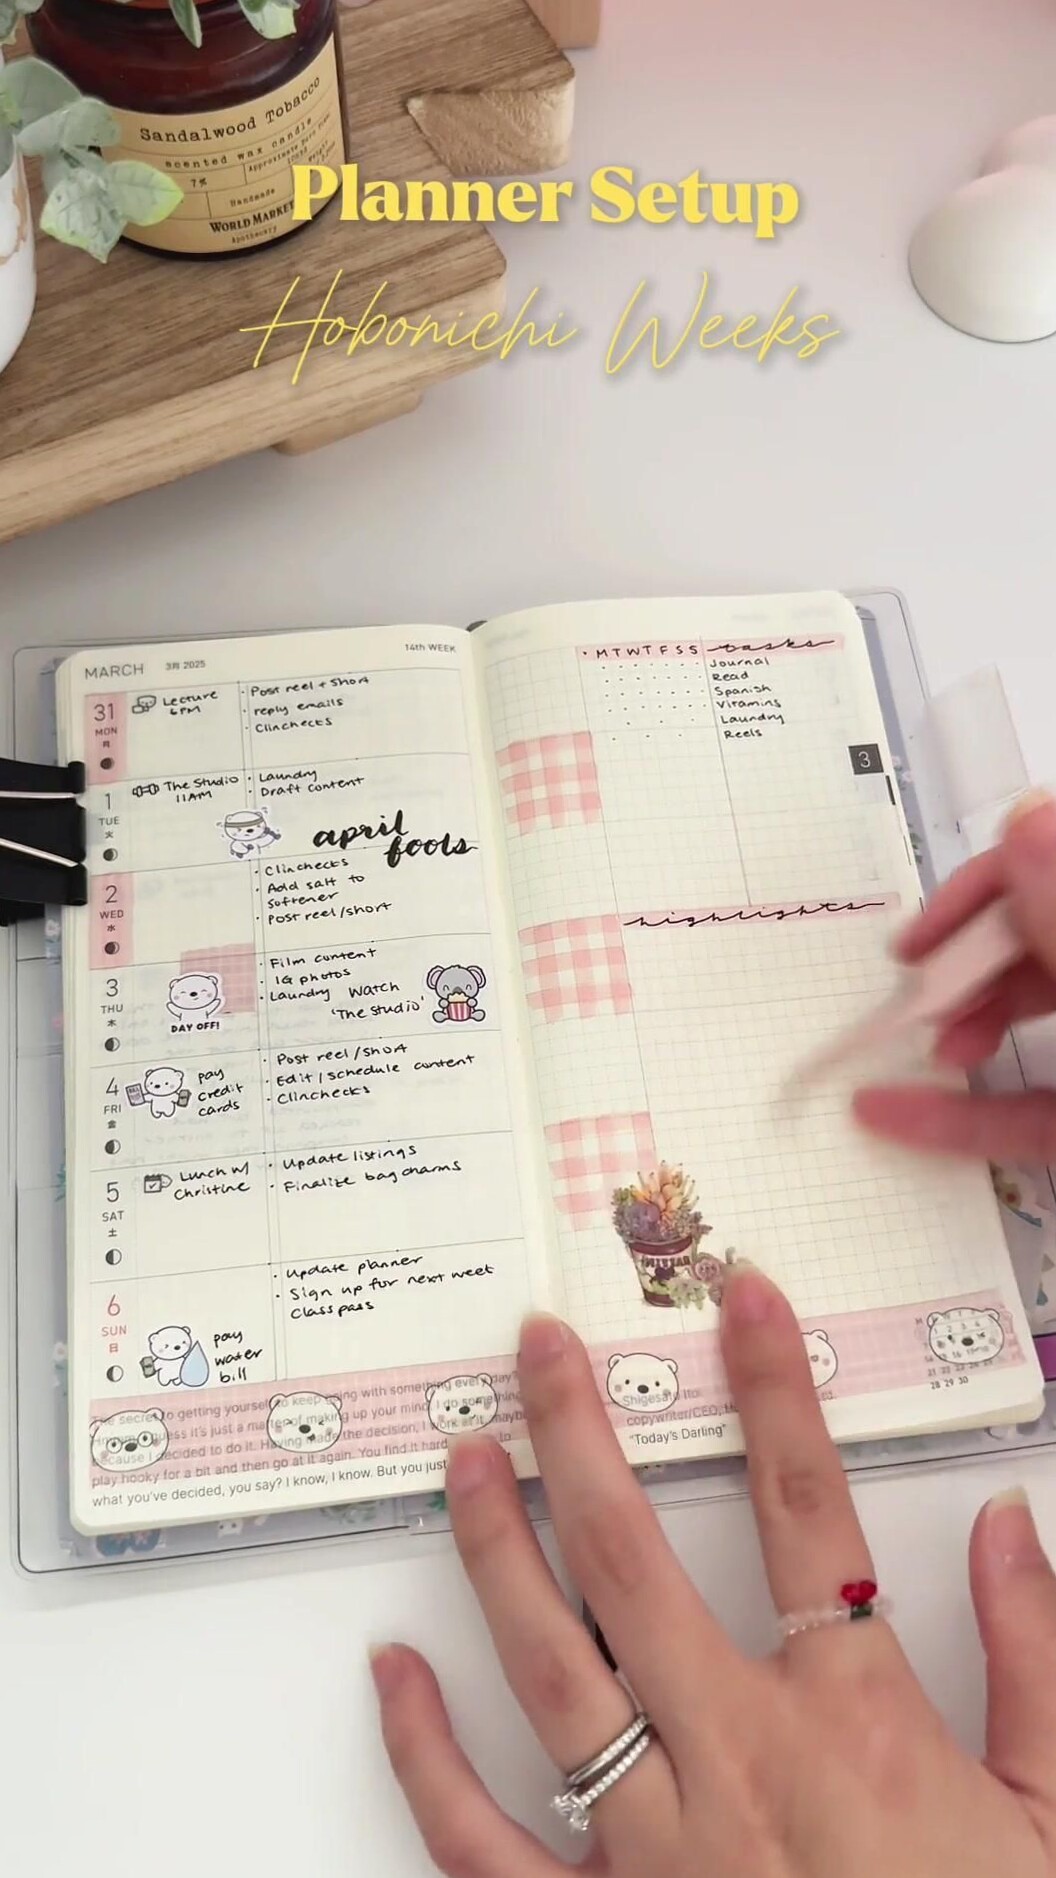 Sandalwood Tobacco
scented wax candle
Handmade
WORLD MARKET
Apothecary
Planner Setup
Hobonichi Weeks
MARCH 3月 2025
14th WEEK
31
MON
月
Lecture
6PM
· Post reel + short
· reply emails
· Clinchecks
1
TUE
火
The Studio
11AM
· Laundry
· Draft content
april
fools
2
WED
水
· Clinchecks
· Add salt to
softener
· Post reel/short
3
THU
木
DAY OFF!
· Film content
· IG photos
· Laundry
Watch
'The Studio'
4
FRI
金
pay
credit
cards
· Post reel/short
· Edit/schedule content
· Clinchecks
5
SAT
土
Lunch w/
Christine
· Update listings
· Finalize bag charms
6
SUN
日
pay
water
bill
· Update planner
· Sign up for next week
classpass
The secret to getting yourself to keep going with something every day?
guess it's just a matter of making up your mind. I do something
because I decided to do it. Having made the decision, I work at it, maybe
play hooky for a bit and then go at it again. You find it hard to
what you've decided, you say? I know, I know. But you just
M T W T F S S
tasks
Journal
Read
Spanish
Vitamins
Laundry
Reels
3
highlights
Shigesato Itoi
copywriter/CEO,
"Today's Darling"
28 29 30